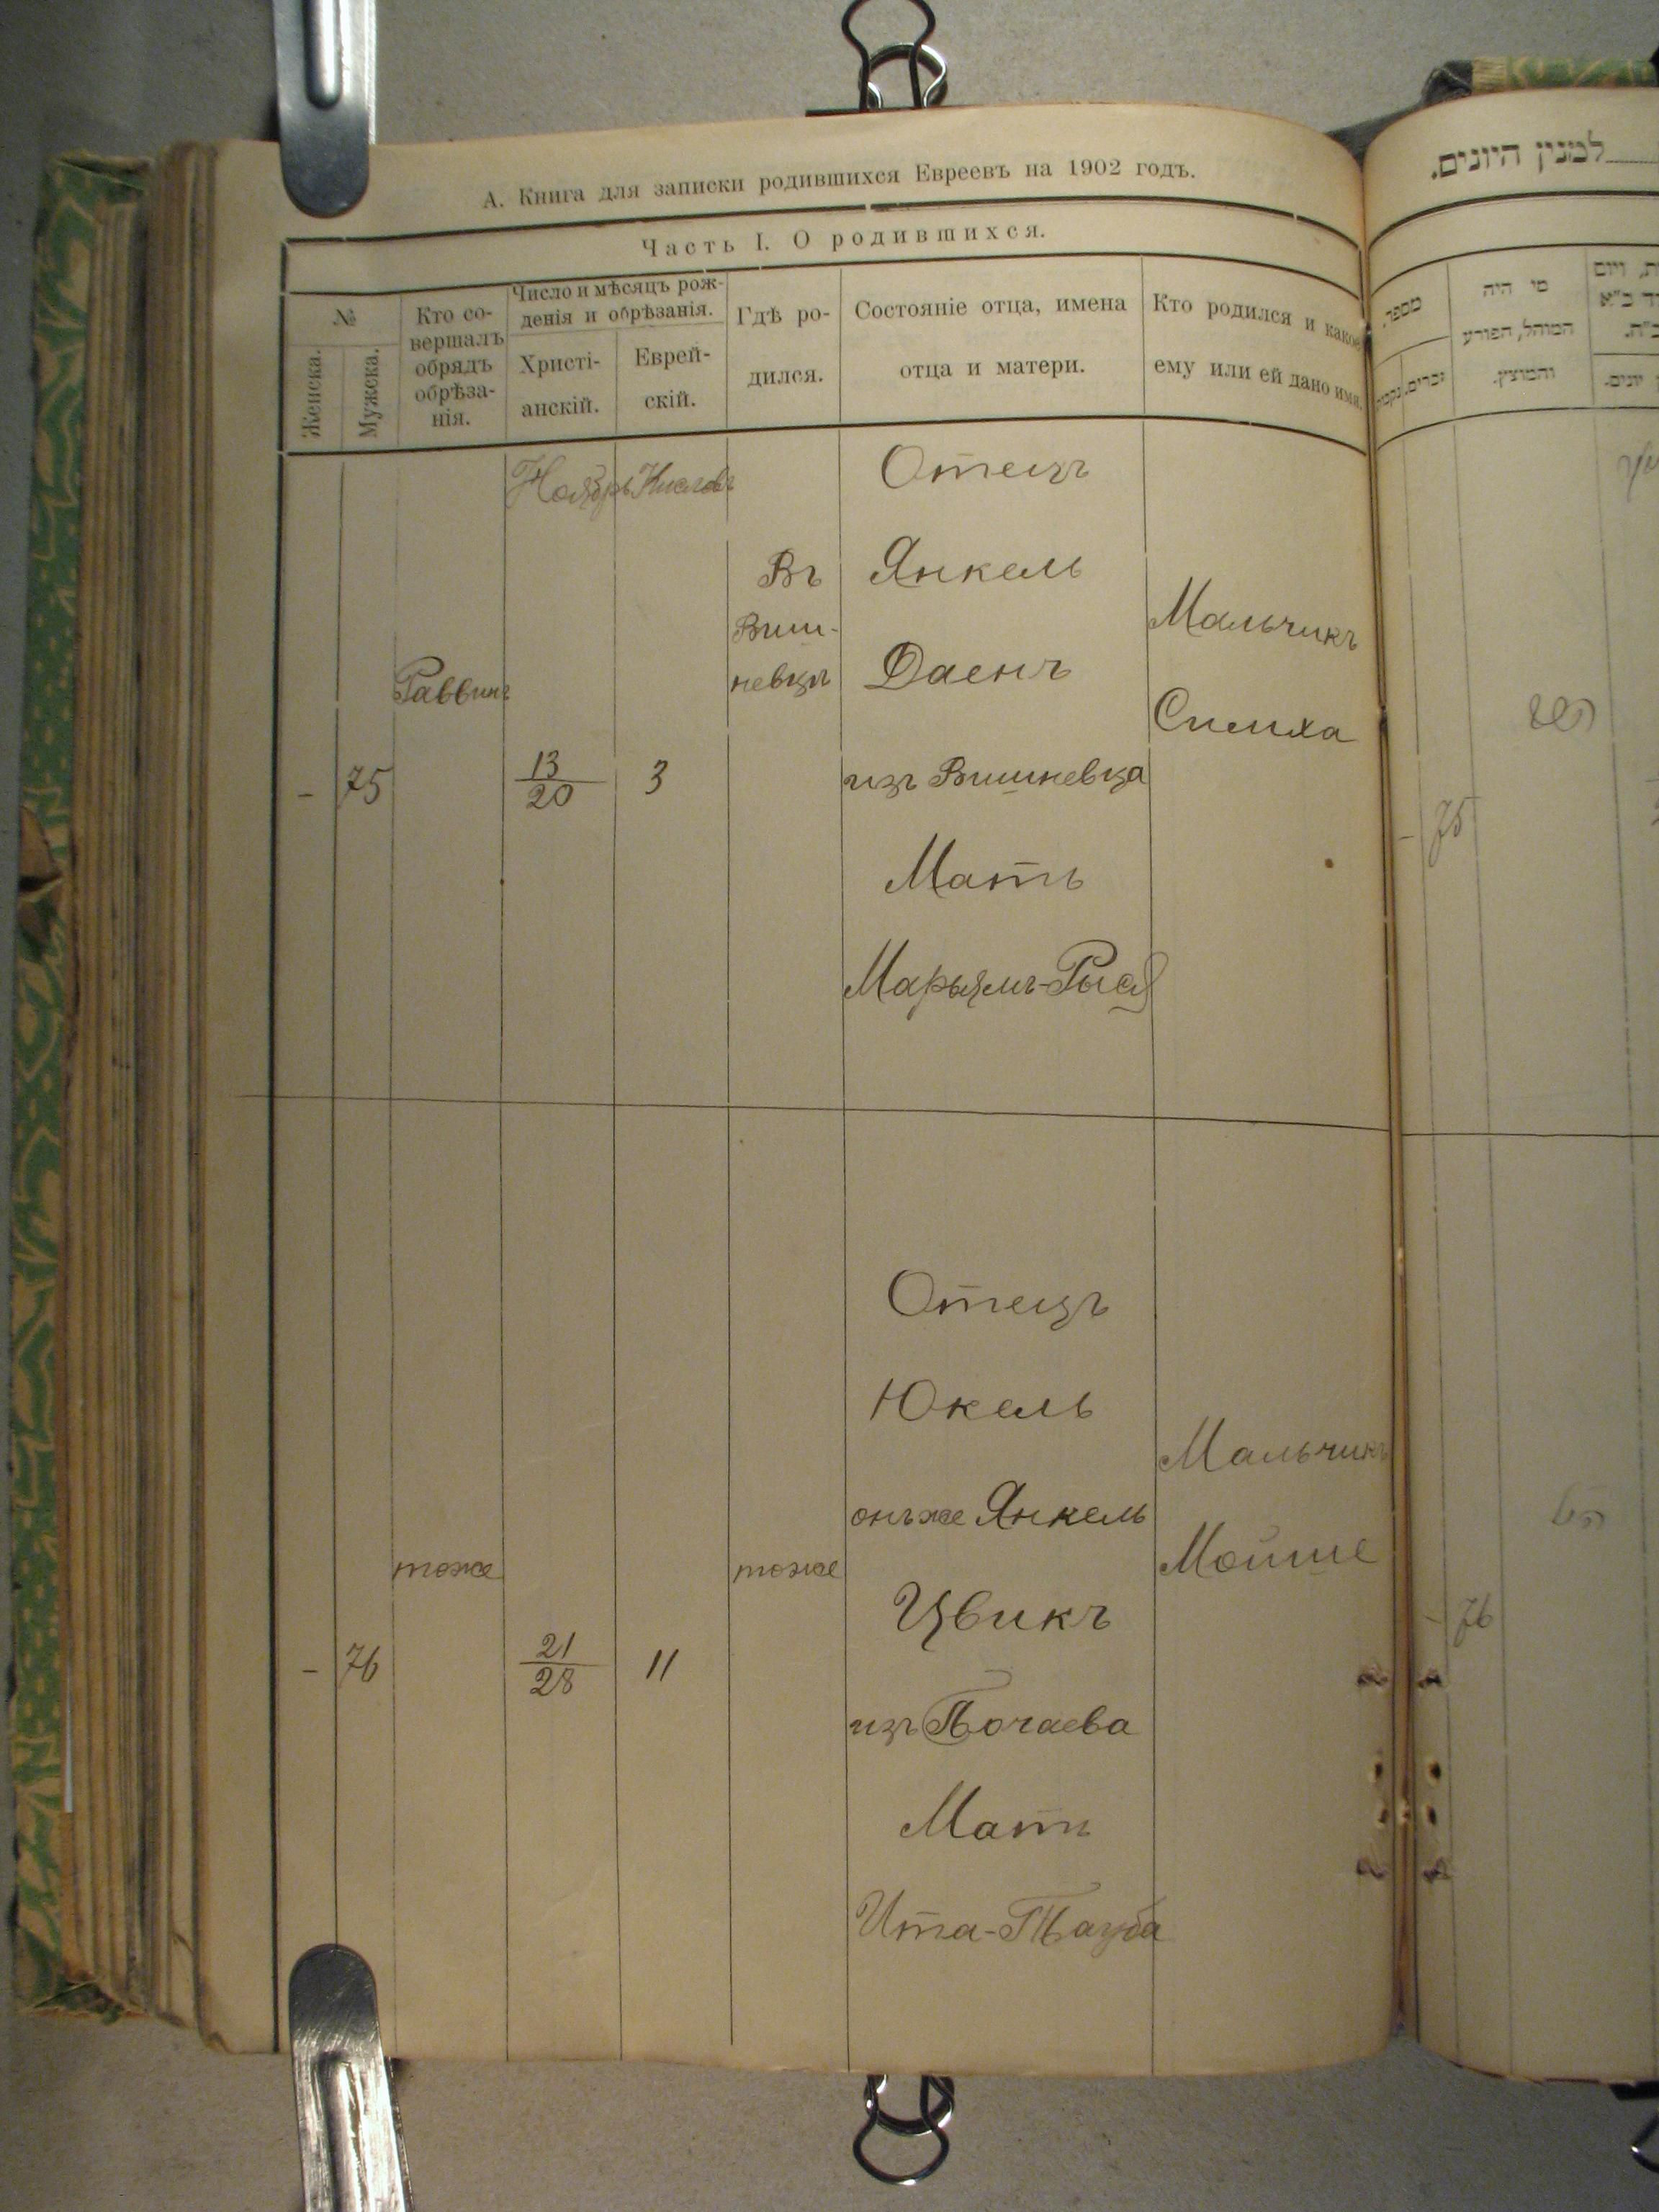 А. Книга для записки родившихся Евреевъ на 1902 годъ.
Часть I. О родившихся.
№
Женска.
Мужска.
Кто со-
вершалъ
обрядъ
обрѣза-
нія.
Число и мѣсяцъ рож-
денія и обрѣзанія.
Христі-
анскій.
Еврей-
скій.
Гдѣ ро-
дился.
Состояніе отца, имена
отца и матери.
Кто родился и какое
ему или ей дано имя.
Ноябрь Кислевъ
-
75
Раввинъ
13
20
3
Въ
Виш-
невцѣ
Отецъ
Янкель
Даенъ
изъ Вишневца
Мать
Марьямъ-Рыся
Мальчикъ
Симха
-
76
тоже
21
28
11
тоже
Отецъ
Юкель
онъ же Янкель
Цвикъ
изъ Почаева
Мать
Ита-Тауба
Мальчикъ
Мойше
למנין היונים.
מספר
זכרים.
נקבות
מי היה
המוהל, הפורע
והמוצץ.
יונים.
- 75
- 76